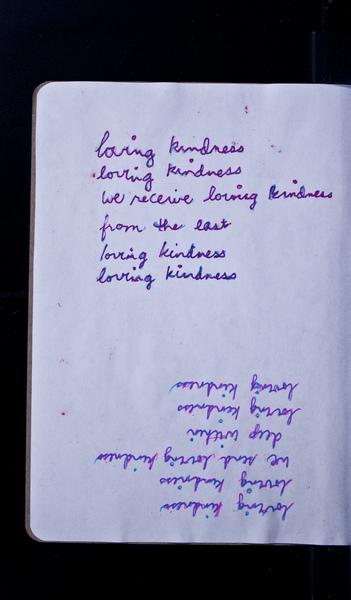 loving kindness
loving kindness
we receive loving kindness
from the east
loving kindness
loving kindness
loving kindness
loving kindness
we send loving kindness
deep within
loving kindness
loving kindness